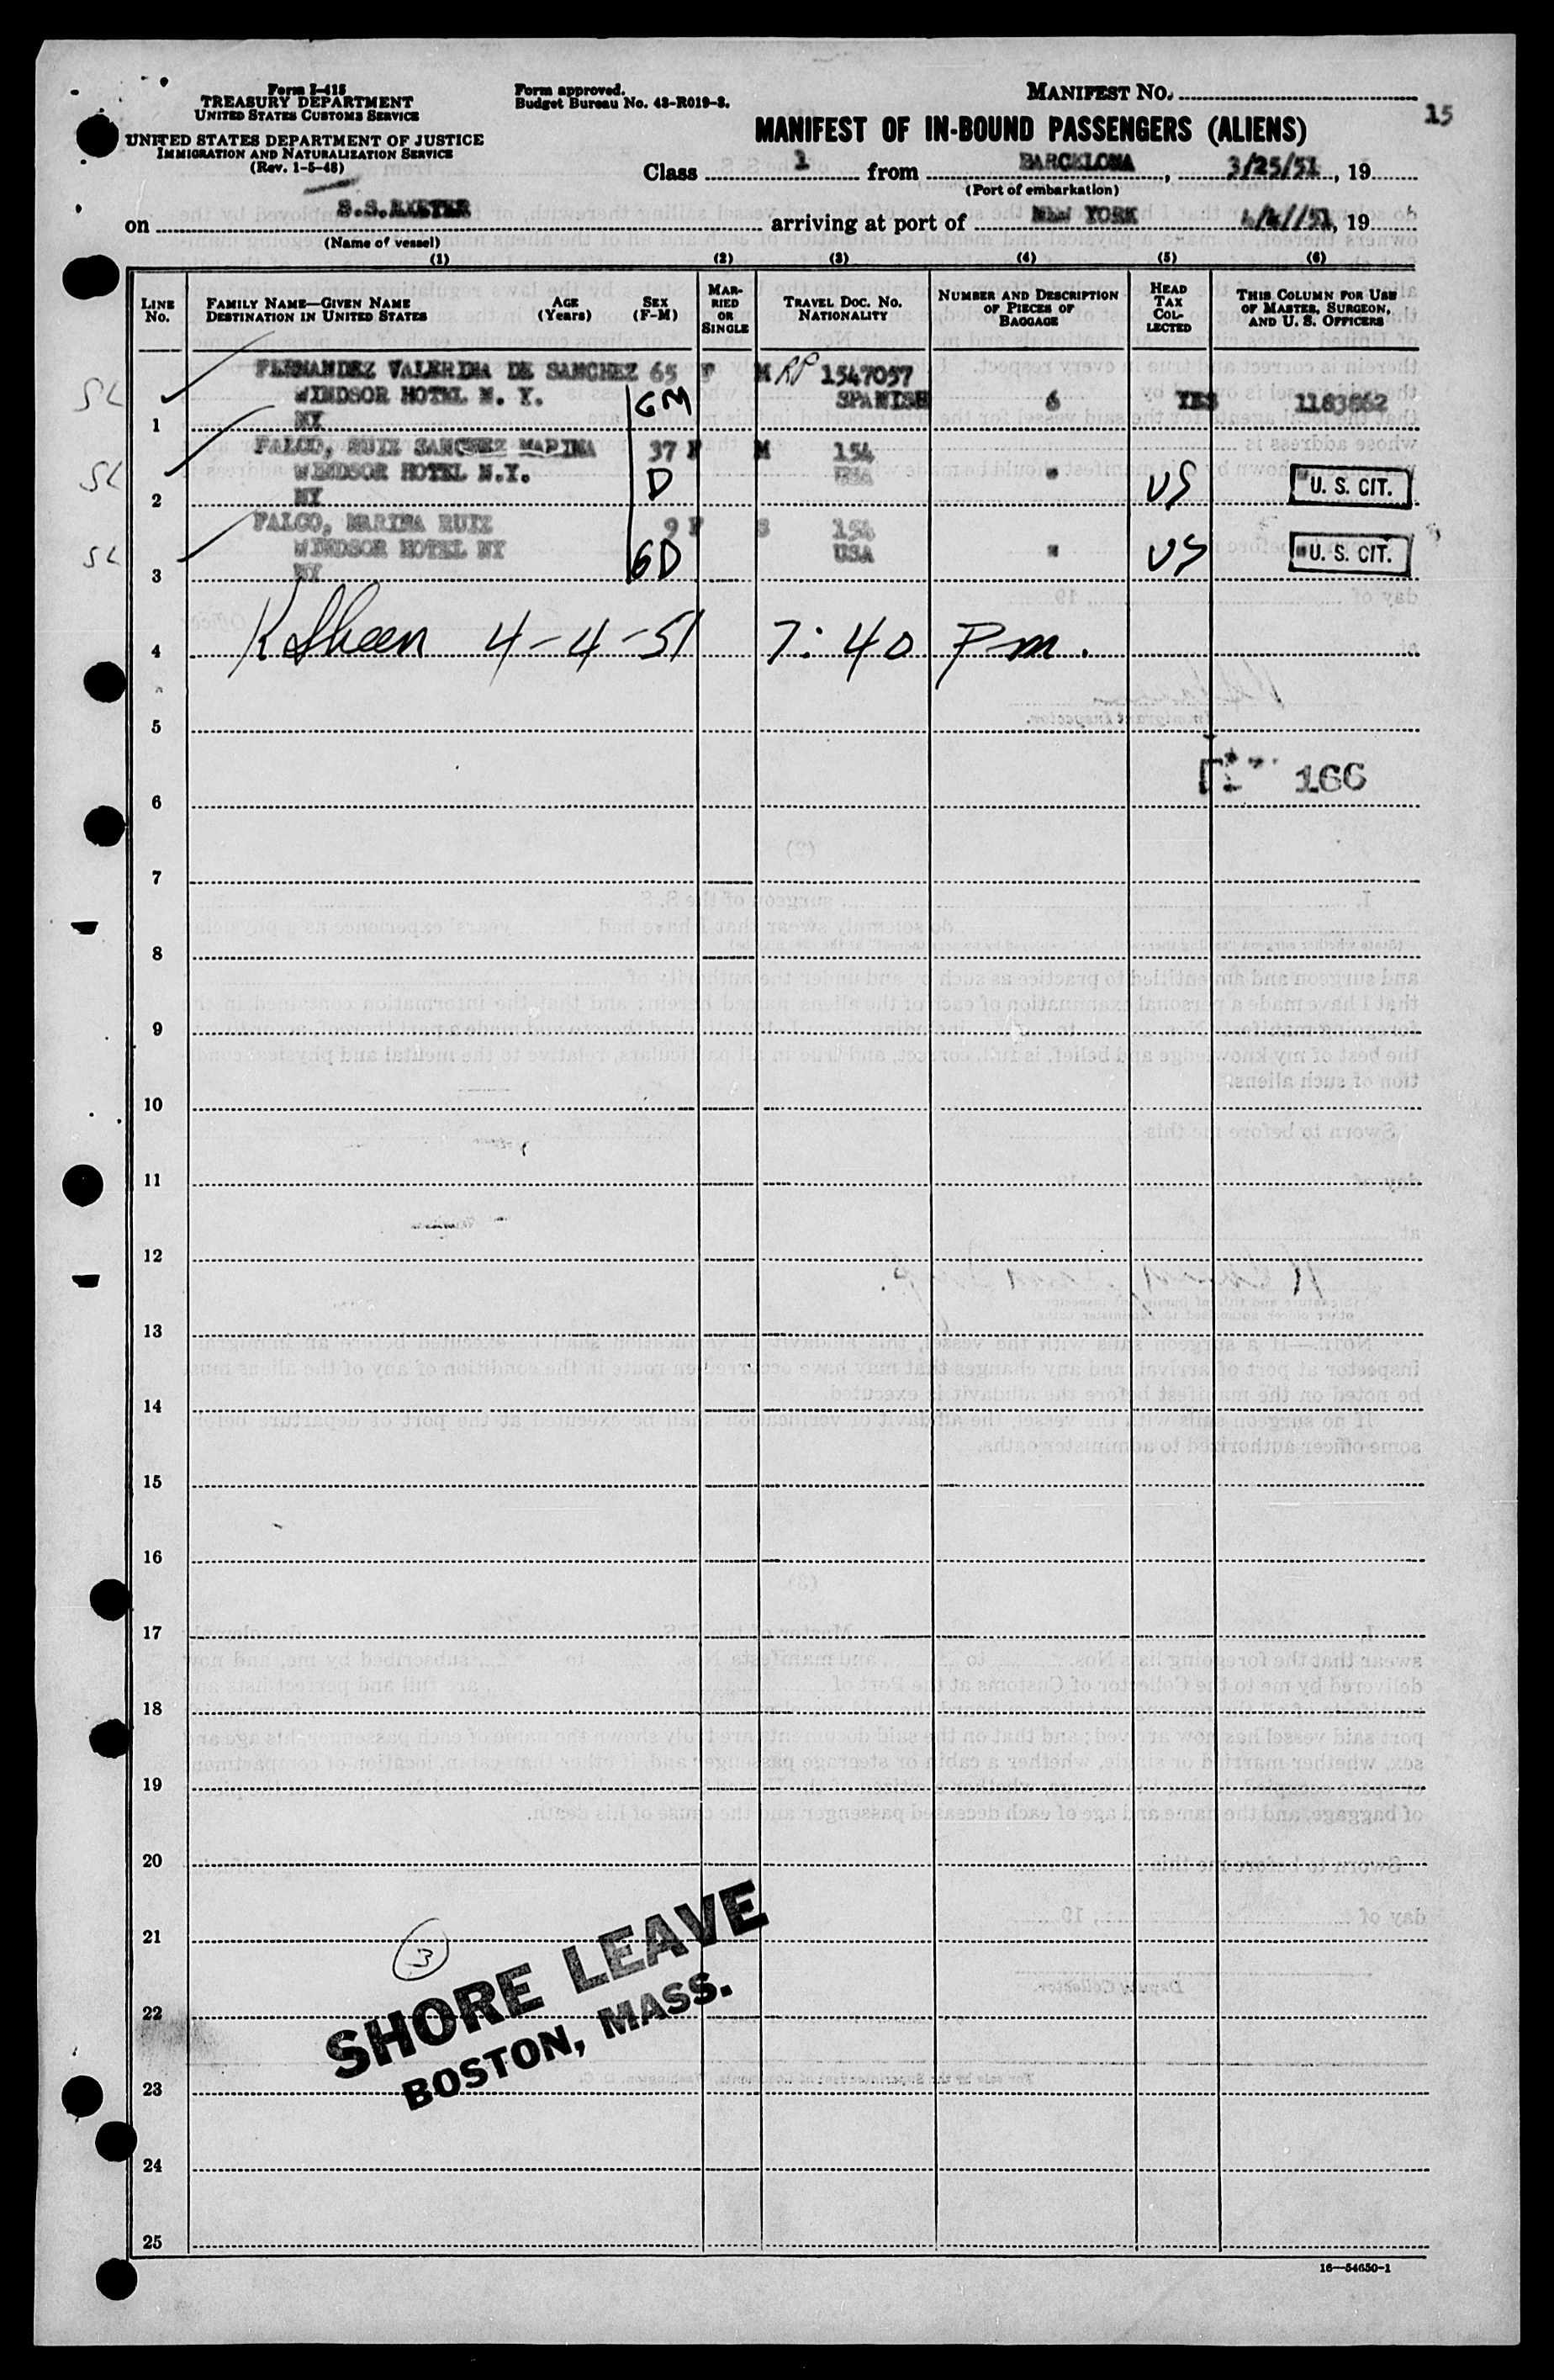 Form I-415
TREASURY DEPARTMENT
UNITED STATES CUSTOMS SERVICE
UNITED STATES DEPARTMENT OF JUSTICE
IMMIGRATION AND NATURALIZATION SERVICE
(Rev. 1-5-48)
Form approved.
Budget Bureau No. 43-R019-3.
MANIFEST NO.
15
MANIFEST OF IN-BOUND PASSENGERS (ALIENS)
Class 1 from BARCELONA, 3/25/51, 19
(Port of embarkation)
on S.S.EXETER arriving at port of NEW YORK 4/4//51, 19
(Name of vessel)
(1) (2) (3) (4) (5) (6)
LINE NO. FAMILY NAME—GIVEN NAME DESTINATION IN UNITED STATES AGE (Years) SEX (F-M) MARRIED OR SINGLE TRAVEL DOC. NO. NATIONALITY NUMBER AND DESCRIPTION OF PIECES OF BAGGAGE HEAD TAX COLLECTED THIS COLUMN FOR USE OF MASTER, SURGEON, AND U. S. OFFICERS
FERNANDEZ VALERINA DE SANCHEZ 65 F M RP 1547057
SL WINDSOR HOTEL N. Y. GM SPANISH 6 YES 1183862
1 NY
FALCO, RUIZ SANCHEZ MARINA 37 F M 154
SL WINDSOR HOTEL N.Y. D USA " US U. S. CIT.
2 NY
FALCO, MARINA RUIZ 9 F S 154
SL WINDSOR HOTEL NY GD USA " US U. S. CIT.
3 NY
4 R Sheen 4-4-51 7:40 Pm.
5
166
6
7
8
9
10
11
12
13
14
15
16
17
18
19
20
21
3
SHORE LEAVE
BOSTON, MASS.
22
23
24
25
16—54650-1